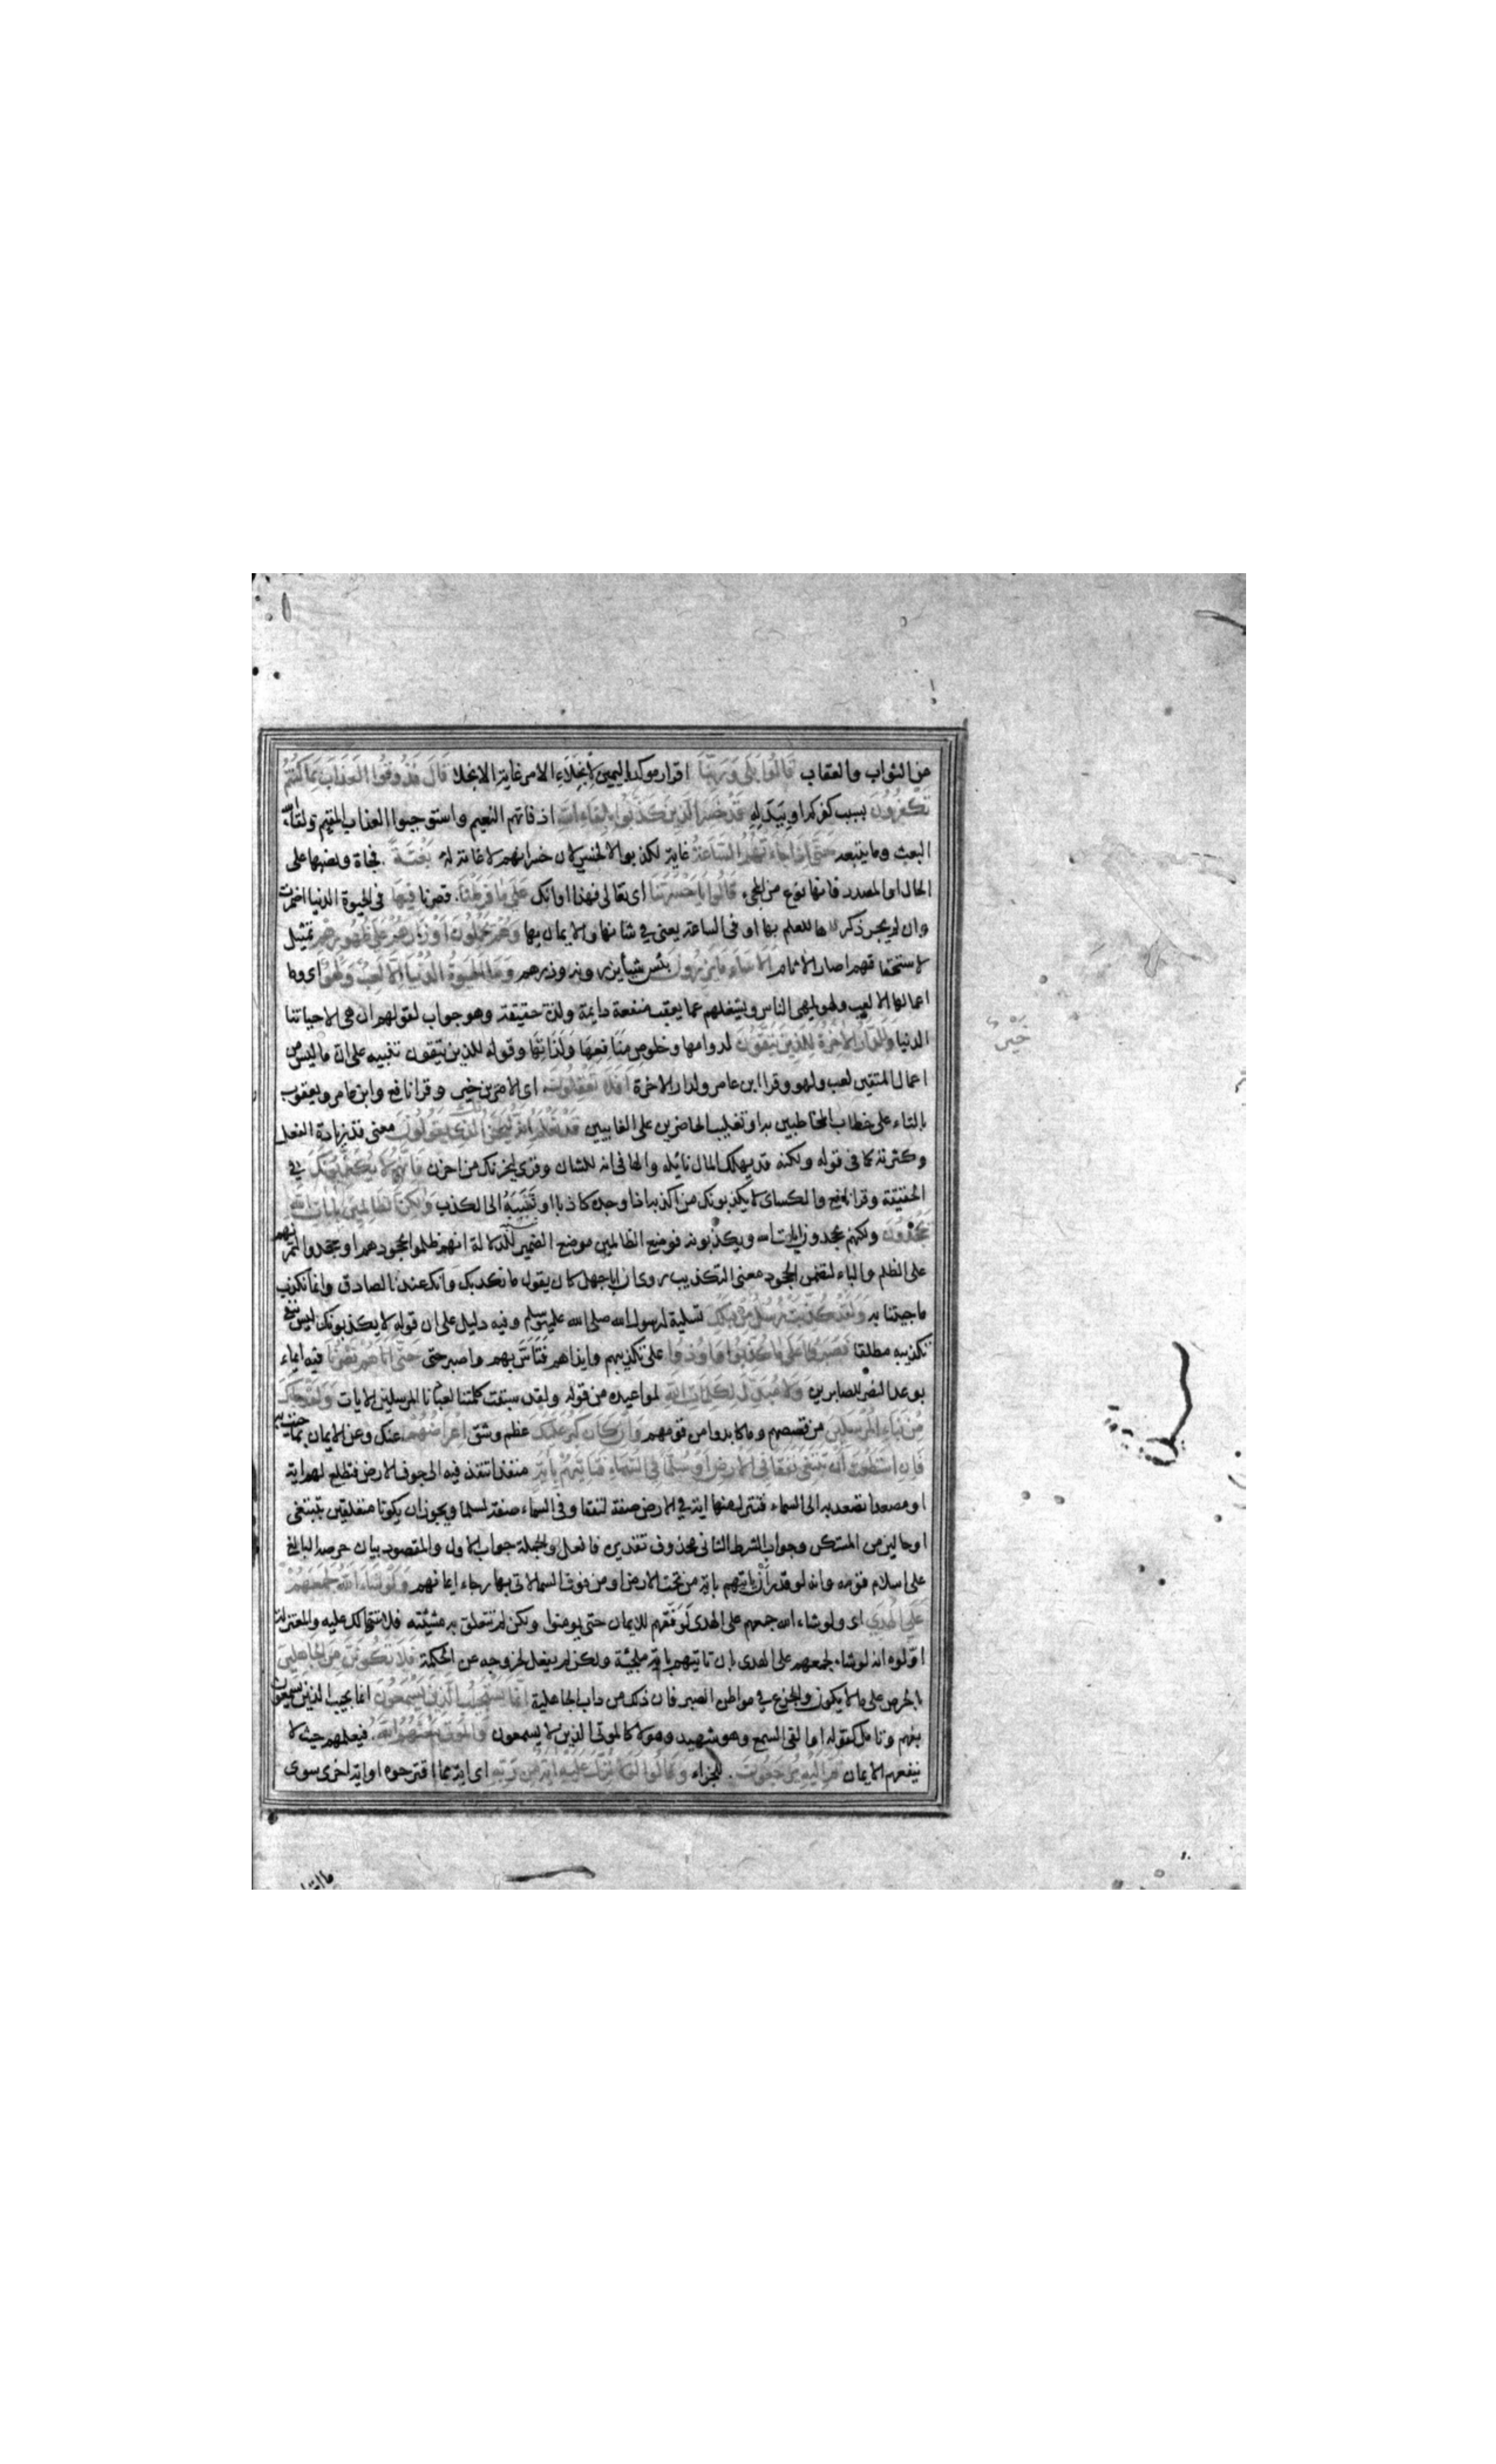 من الثواب والعقاب قَالُوا بَلَى وَرَبِّنَا اقرار موكد باليمين لِأنجِلَاءِ الامر غاية الانجلا قَالَ فَذُوقُوا العَذَابَ بِمَا كُنْتُمْ
تَكْفُرُونَ بسبب كفركم او ببدله قَدْ خَسِرَ الَّذِينَ كَذَّبُوا بِلِقَاءِ اللهِ اذ فاتهم النعيم واستوجبوا العذاب المقيم ولقاء الله
البعث وما يتبعه حَتَّى اِذَا جَاءَتْهُمُ السَّاعَةُ غاية لكذبوا لا لخسر لان خسرانهم لا غاية له بَغْتَةً فجاة ونصبها على
الحال او المصدر فانها نوع من المجيء قَالُوا يَا حَسْرَتَنَا اى تعالى فهذا اوانك عَلَى مَا فَرَّطْنَا قصرنا فِيهَا فى الحيوة الدنيا اضمرت
وان لم يجر ذكرها للعلم بها او فى الساعة يعنى في شانها والايمان بها وَهُمْ يَحْمِلُونَ اَوْزَارَهُمْ عَلَى ظُهُورِهِمْ تمثيل
لاستحقاقهم اصار الاثام اَلَا سَاءَ مَا يَزِرُونَ بئس شيأ يزرونه وزرهم وَمَا الحَيوةُ الدُّنْيَا اِلَّا لَعِبٌ وَلَهْوٌ اى وما
اعمالها الا لعب ولهو يلهى الناس ويشغلهم عما يعقب منفعة دايمة ولذة حقيقة وهو جواب لقولهم ان هى الا حياتنا
الدنيا وَلَلدَّارُ الاخِرَةُ لِلَّذِينَ يَتَّقُونَ لدوامها وخلوص مَنَافِعِهَا وَلَذَاتِهَا وقوله للذين يتقون تنبيه على ان ما ليس من
اعمال المتقين لعب ولهو وقرا ابن عامر ولدار الاخرة اَفَلَا تَعْقِلُونَ اى الامرين خير وقرا نافع وابن عامر ويعقوب
بالتاء على خطاب المخاطبين به او تغليب الحاضرين على الغايبين قَدْ نَعْلَمُ اِنَّهُ لَيَحْزُنُكَ الَّذِى يَقُولُونَ معنى قد زيادة الفعل
وكثرته كما فى قوله ولكنه قد يهلك المال نائله والها فى انه للشان وقرى ليحزنك من احزن فَاِنَّهُمْ لَا يُكَذِّبُونَكَ في
الحقيقة وقرا نافع والكسائ لا يكذبونك من اكذبه اذا وجده كاذبا او نَسَبَهُ الى الكذب وَلَكِنَّ الظَّالِمِينَ بِايَاتِ اللهِ
يَجْحَدُونَ ولكنهم يجحدون بايات الله ويكذبونه فوضع الظالمين موضع الضمير للدلالة انهم ظلموا بجحودهم او جحدوا لتمرنهم
على الظلم والباء لتضمن الجحود معنى التكذيب روى ان ابا جهل كان يقول ما نكذبك وانك عندنا لصادق وانما نكذب
ما جيتنا به وَلَقَدْ كُذِّبَتْ رُسُلٌ مِنْ قَبْلِكَ تسلية لرسول الله صلى الله عليه وسلم وفيه دليل على ان قوله لا يكذبونك ليس لنفى
تكذيبه مطلقا فَصَبَرُوا عَلَى مَا كُذِّبُوا وَاُوذُوا على تكذيبهم وايذاهم فَتَاَسَّ بهم واصبر حتى حَتَّى اَتَاهُمْ نَصْرُنَا فيه ايماء
بوعد النصر للصابرين وَلَا مُبَدِّلَ لِكَلِمَاتِ اللهِ لمواعيده من قوله ولقد سبقت كلمتنا لعبادنا المرسلين الايات وَلَقَدْ جَاءَكَ
مِنْ نَبَاءِ المُرْسَلِينَ من قصصهم وما كابدوا من قومهم وَاِنْ كَانَ كَبُرَ عَلَيْكَ عظم وشق اِعْرَاضُهُمْ عنك وعن الايمان بما جيت به
فَاِنِ اسْتَطَعْتَ اَنْ تَبْتَغِىَ نَفَقًا فِى الارْضِ اَوْ سُلَّمًا فِى السَّمَاءِ فَتَاْتِيَهُمْ بِايَةٍ منفذا تنفذ فيه الى جوف الارض فتطلع لهم اية
او مصعدا تصعد به الى السماء فتنزل منها اية في الارض صفة لنفقا وفى السماء صفة لسلما ويجوز ان يكونا متعلقين بتبتغى
او حالين من المستكن وجواب الشرط الثانى محذوف تقديره فافعل والجملة جواب الاول والمقصود بيان حرصه البالغ
على اسلام قومه وانه لو قدر اَنْ ياتيهم باية من تحت الارض او من فوق السما لاتى بها رجاء ايمانهم وَلَوْ شَاءَ اللهُ لَجَمَعَهُمْ
عَلَى الهُدَى اى ولو شاء الله جمعهم على الهدى لَوَفَّقَهم للايمان حتى يومنوا ولكن لم تتعلق به مشيئته فلا تتهالك عليه والمعتزلة
اوّلوه انه لو شاء لجمعهم على الهدى بان تاتيهم باية ملجئة ولكن لم يفعل لخروجه عن الحكمة فَلَا تَكُونَنَّ مِنَ الجَاهِلِينَ
بالحرص على ما لا يكون والجزع في مواطن الصبر فان ذلك من داب الجاهلية اِنَّمَا يَسْتَجِيبُ الَّذِينَ يَسْمَعُونَ انما يجيب الذين يسمعون
بفهم وتامل كقوله او القى السمع وهو شهيد وهولا كالموتى الذين لا يسمعون وَالمَوْتَى يَبْعَثُهُمُ اللهُ فيعلمهم حيث لا
ينفعهم الايمان ثُمَّ اِلَيْهِ يُرْجَعُونَ للجزاء وَقَالُوا لَوْلَا نُزِّلَ عَلَيْهِ ايَةٌ مِنْ رَبِّهِ اى اية مما اقترحوه او اية اخرى سوى